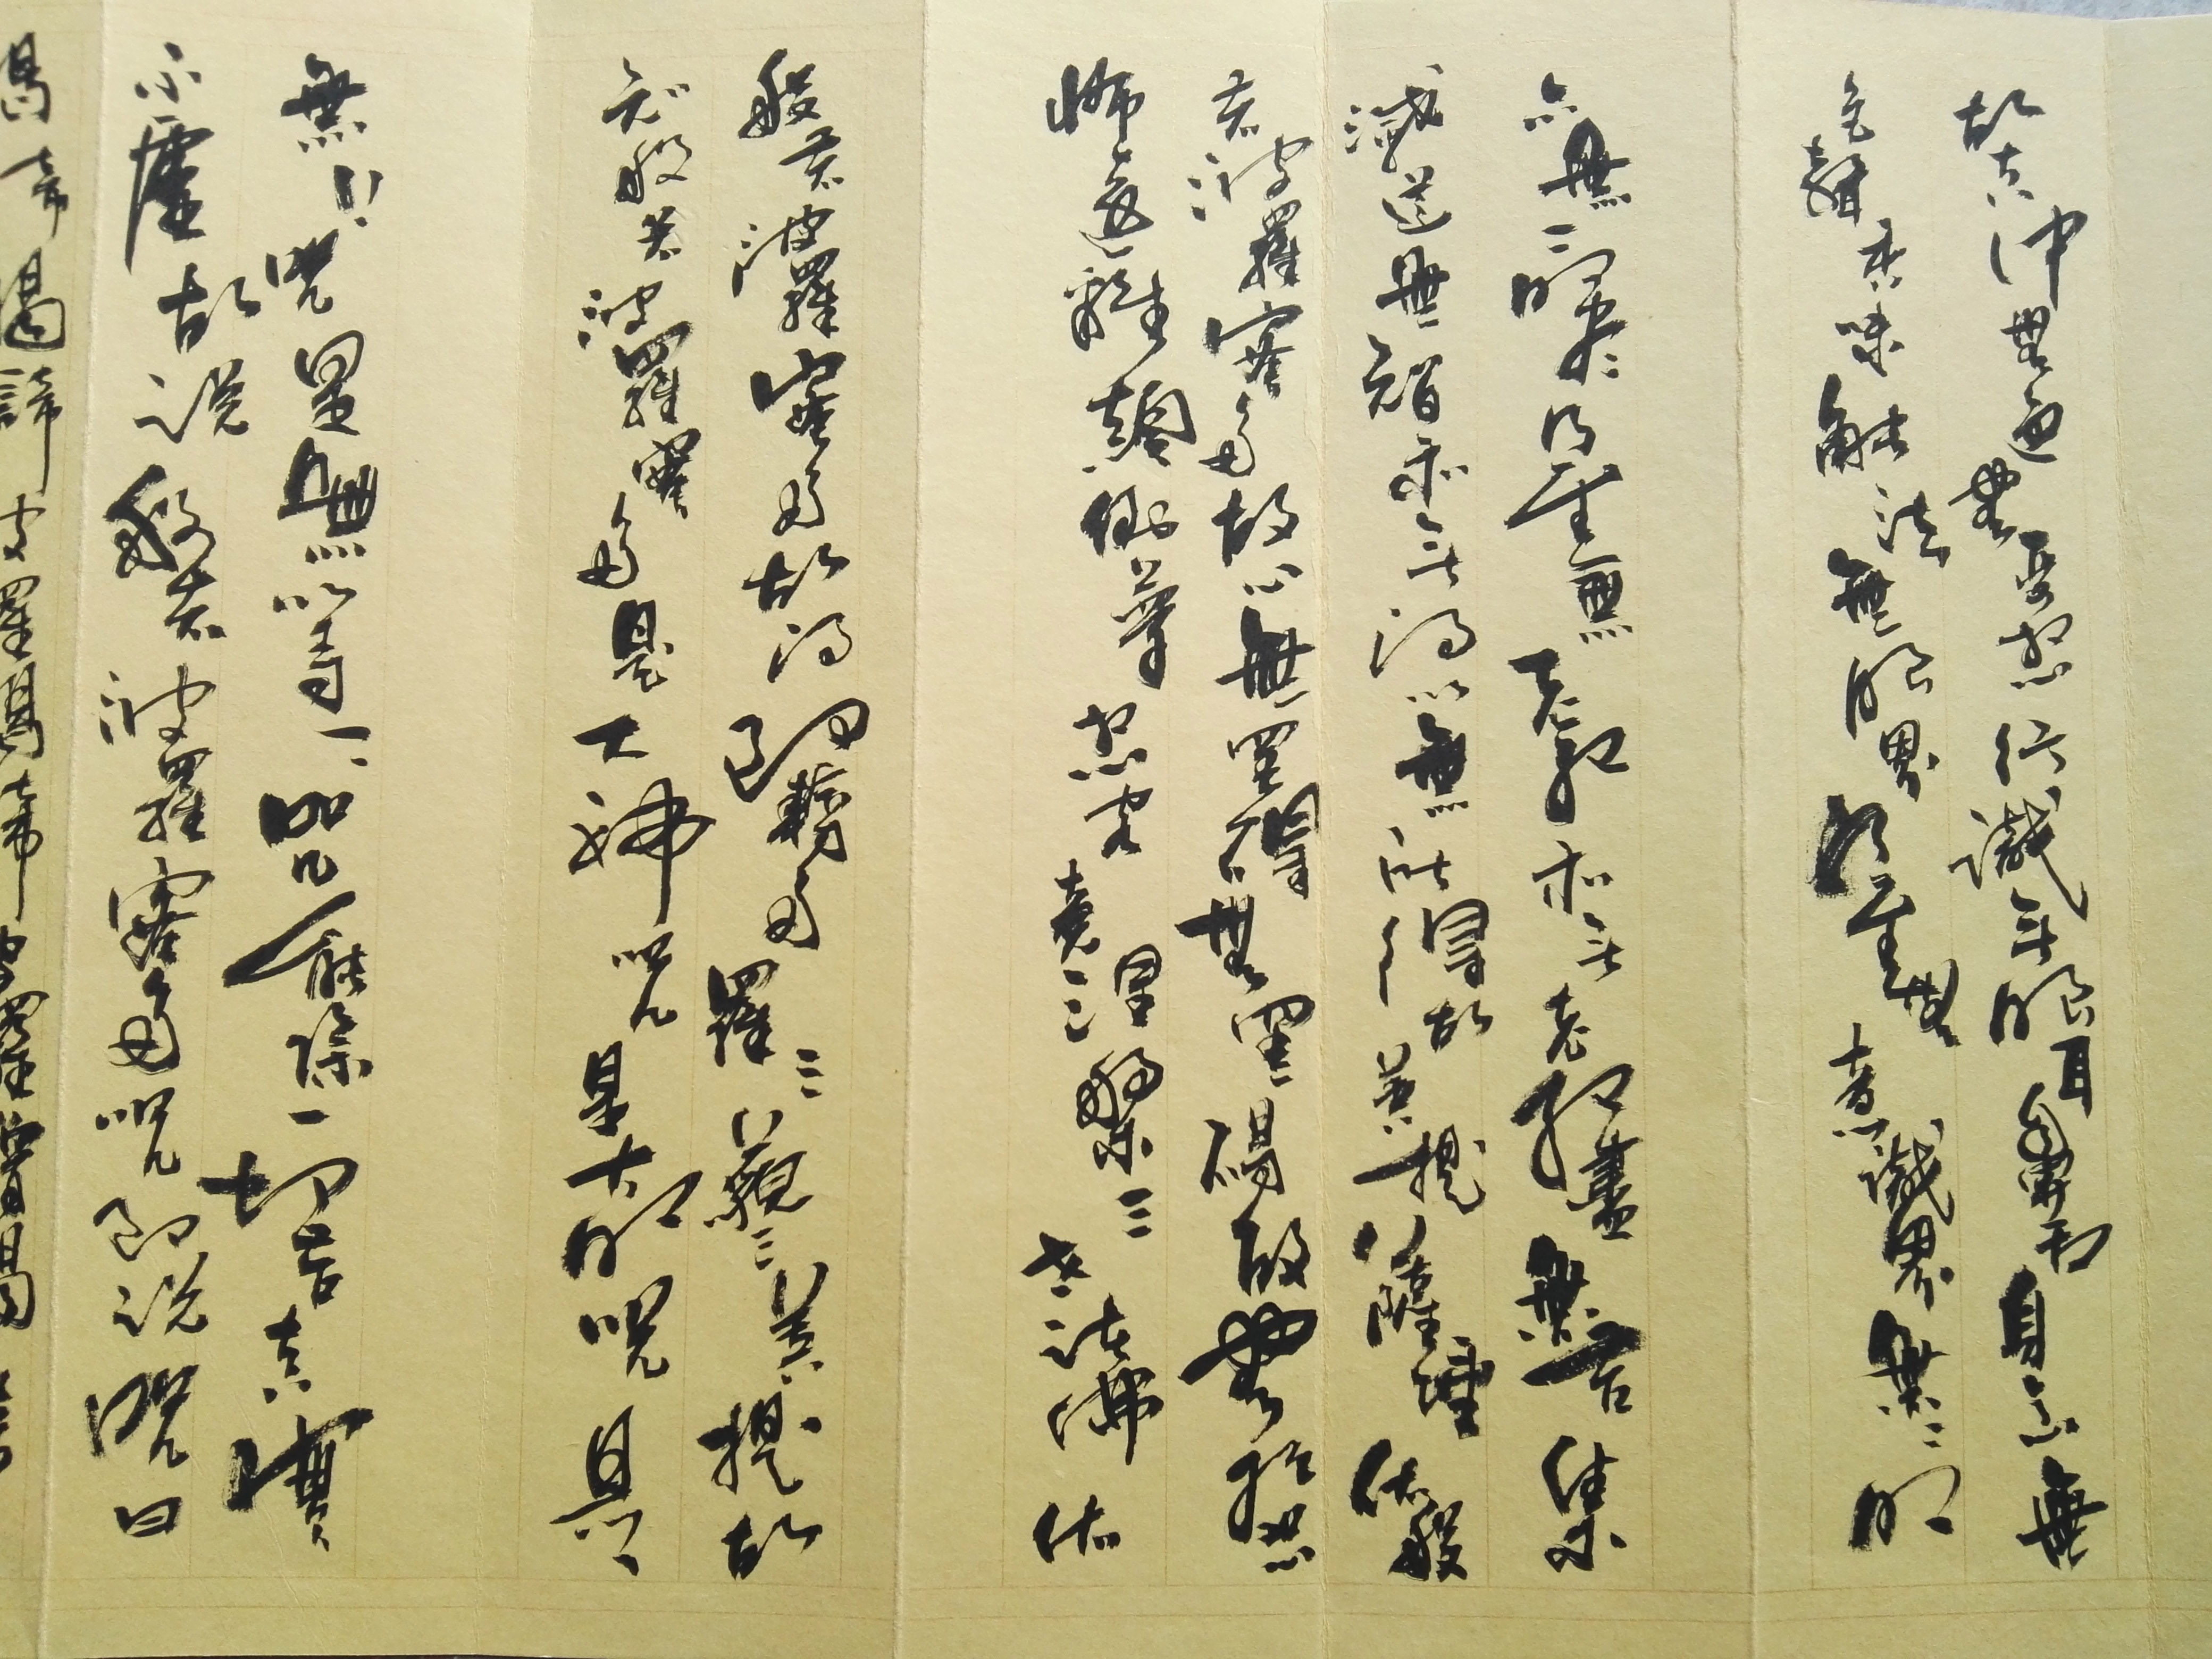 故空中無色無受想行識无眼耳鼻舌身意無
色聲香味觸法無眼界乃至無意識界無〻明
亦無〻明盡乃至無老死亦无老死盡無苦集
滅道無智亦无得以無所得故菩提薩埵依般
若波羅蜜多故心無罣礙無罣礙故無有恐
怖遠離顛倒夢想究竟涅槃三世諸佛依
般若波羅蜜多故得阿耨多羅三藐三菩提故
知般若波羅蜜多是大神咒是大明咒是
無上咒是無等〻咒能除一切苦真實
不虛故說般若波羅蜜多咒即說咒曰
揭諦揭諦波羅揭諦波羅僧揭